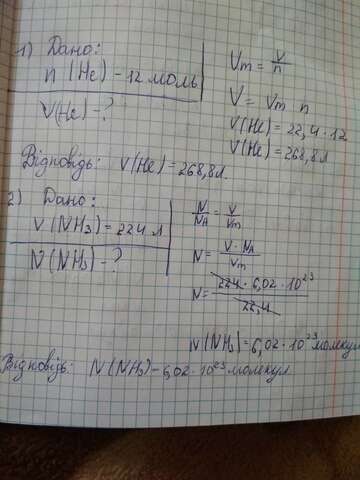 1) Дано:
n (He) - 12 моль
V(He) - ?
Vm = V/n
V = Vm n
V(He) = 22,4 · 12
V(He) = 268,8 л
Відповідь: V(He) = 268,8 л.
2) Дано:
V (NH3) = 224 л
N (NH3) - ?
N/NA = V/Vm
N = V · NA / Vm
N = 224 · 6,02 · 10²³ / 22,4
N (NH3) = 6,02 · 10²³ молекул
Відповідь: N (NH3) - 6,02 · 10²³ молекул